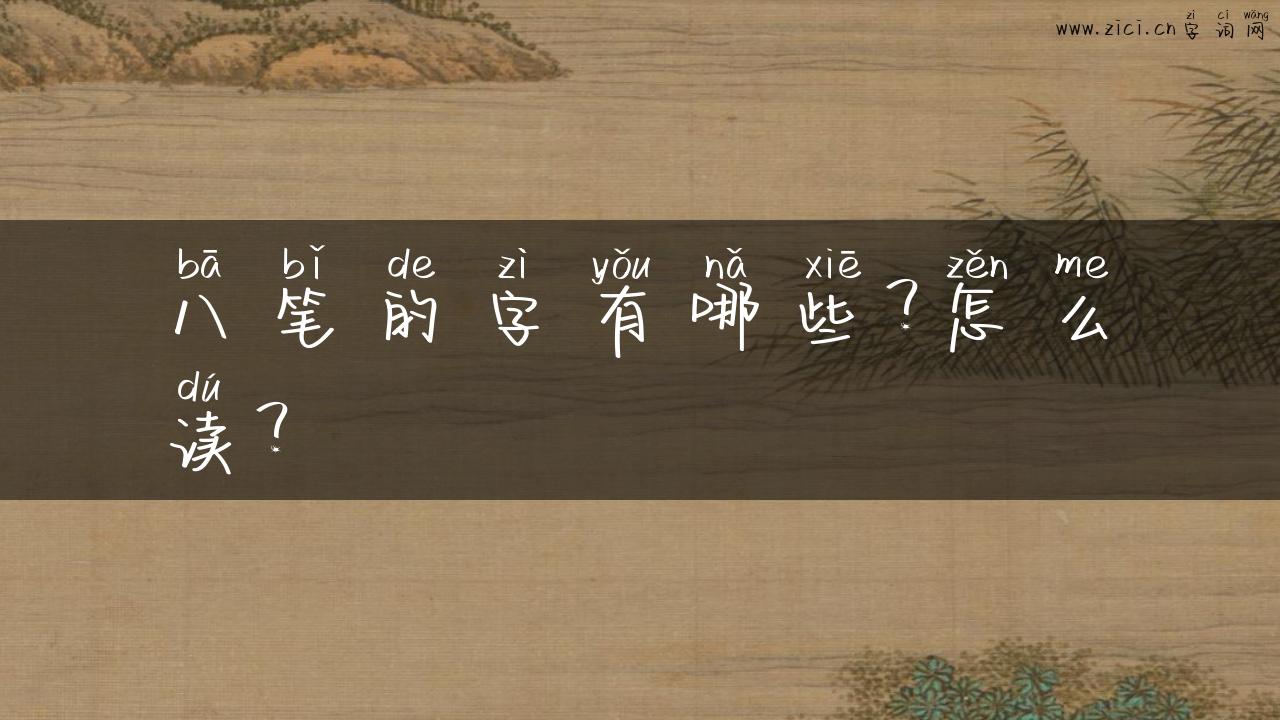 zì cí wǎng
www.zici.cn字词网
bā bǐ de zì yǒu nǎ xiē zěn me
八笔的字有哪些？怎么
dú
读？